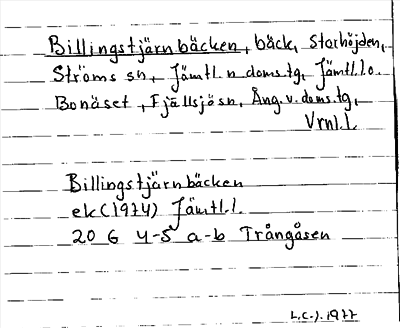 Billingstjärnbäcken, bäck, Storhöjden,
Ströms sn, Jämtl. n doms.tg, Jämtl.l. o.
Bonäset, Fjällsjö sn, Ång. v. doms.tg,
Vrnl.l.
Billingstjärnbäcken
ek (1974) Jämtl.l.
20 G 4-5 a-b Trångåsen
L.C.J. 1977